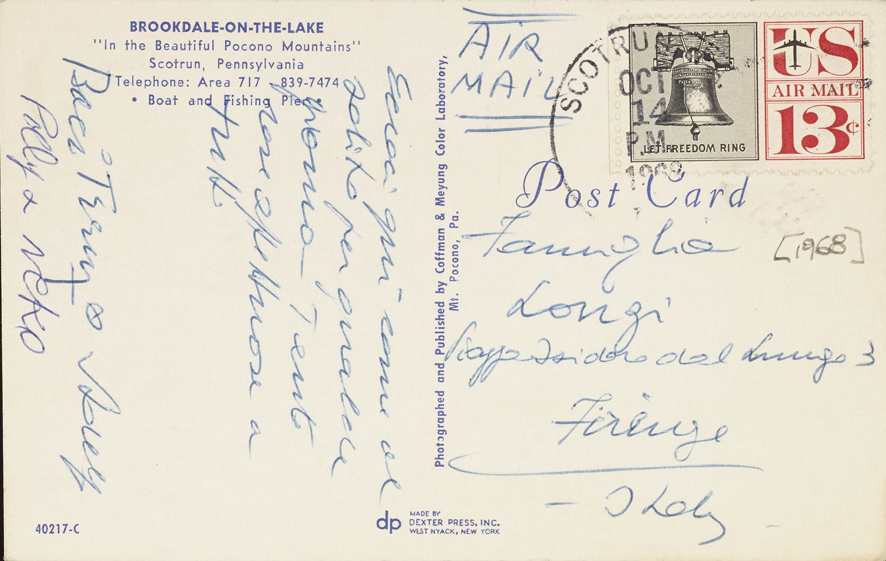 BROOKDALE-ON-THE-LAKE
"In the Beautiful Pocono Mountains"
Scotrun, Pennsylvania
Telephone: Area 717 - 839-7474
• Boat and Fishing Pier •
Eccoci qui come al
solito per qualche
giorno. Tante
cose affettuose a
tutti
Baci
Polly e
Photographed and Published by Coffman & Meyung Color Laboratory,
Mt. Pocono, Pa.
AIR
MAIL
SCOTRUN
OCT
14
P.M.
1968
LET FREEDOM RING
US
AIR MAIL
13¢
Post Card
[1968]
Famiglia
Longi
Piazza Isidoro del Lungo 3
Firenze
- Italy -
40217-C
dp
MADE BY
DEXTER PRESS, INC.
WEST NYACK, NEW YORK